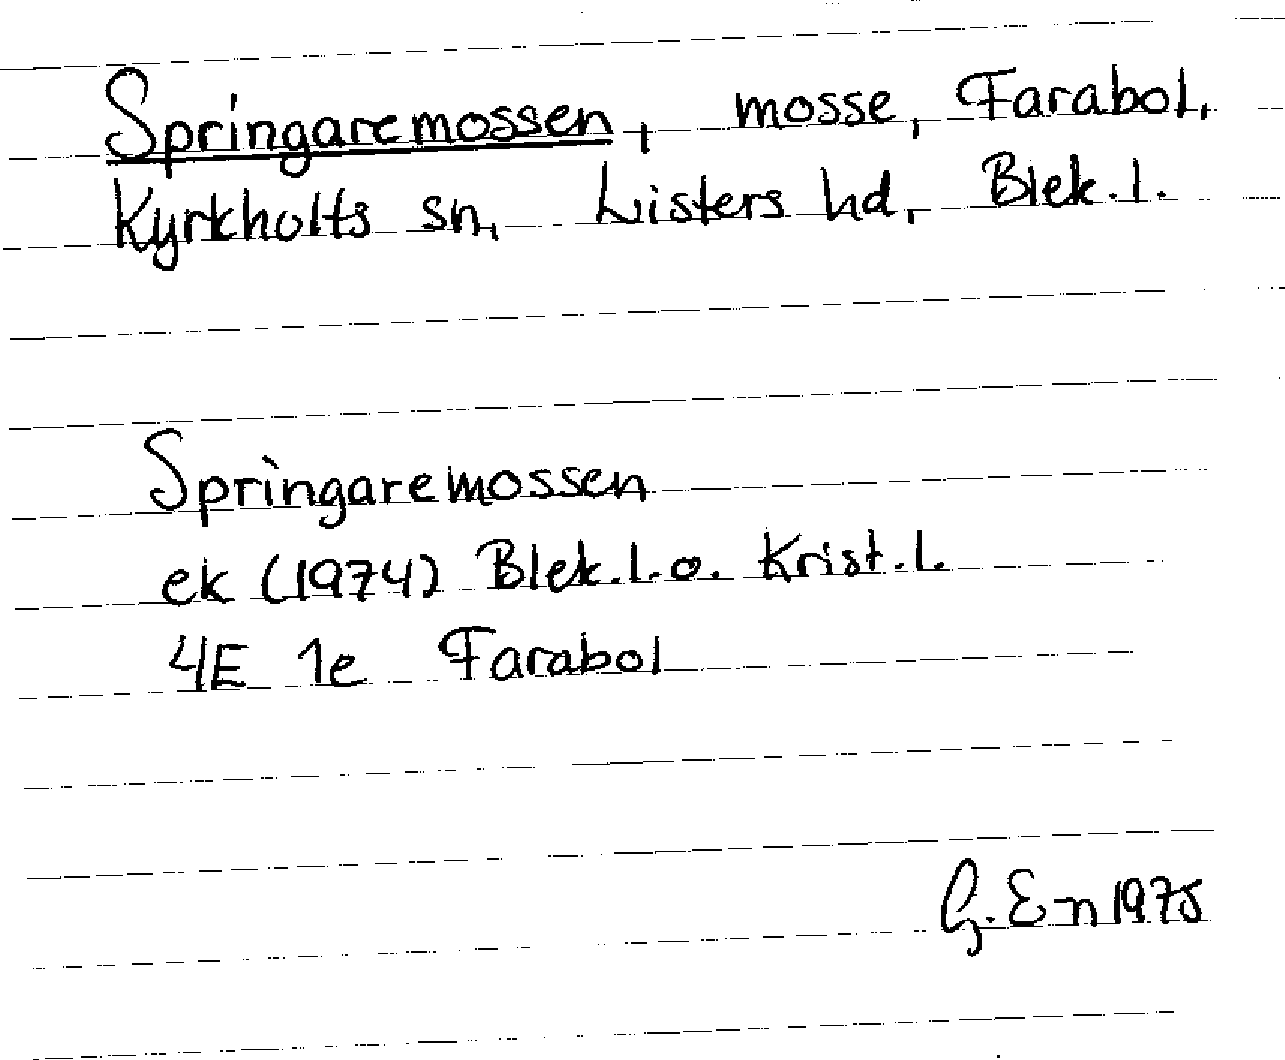 Springaremossen, mosse, Farabol,
Kyrkhults sn, Listers hd, Blek.l.
Springaremossen
ek (1974) Blek.l.o. Krist.l.
4E 1e Farabol
G. E-n 1975